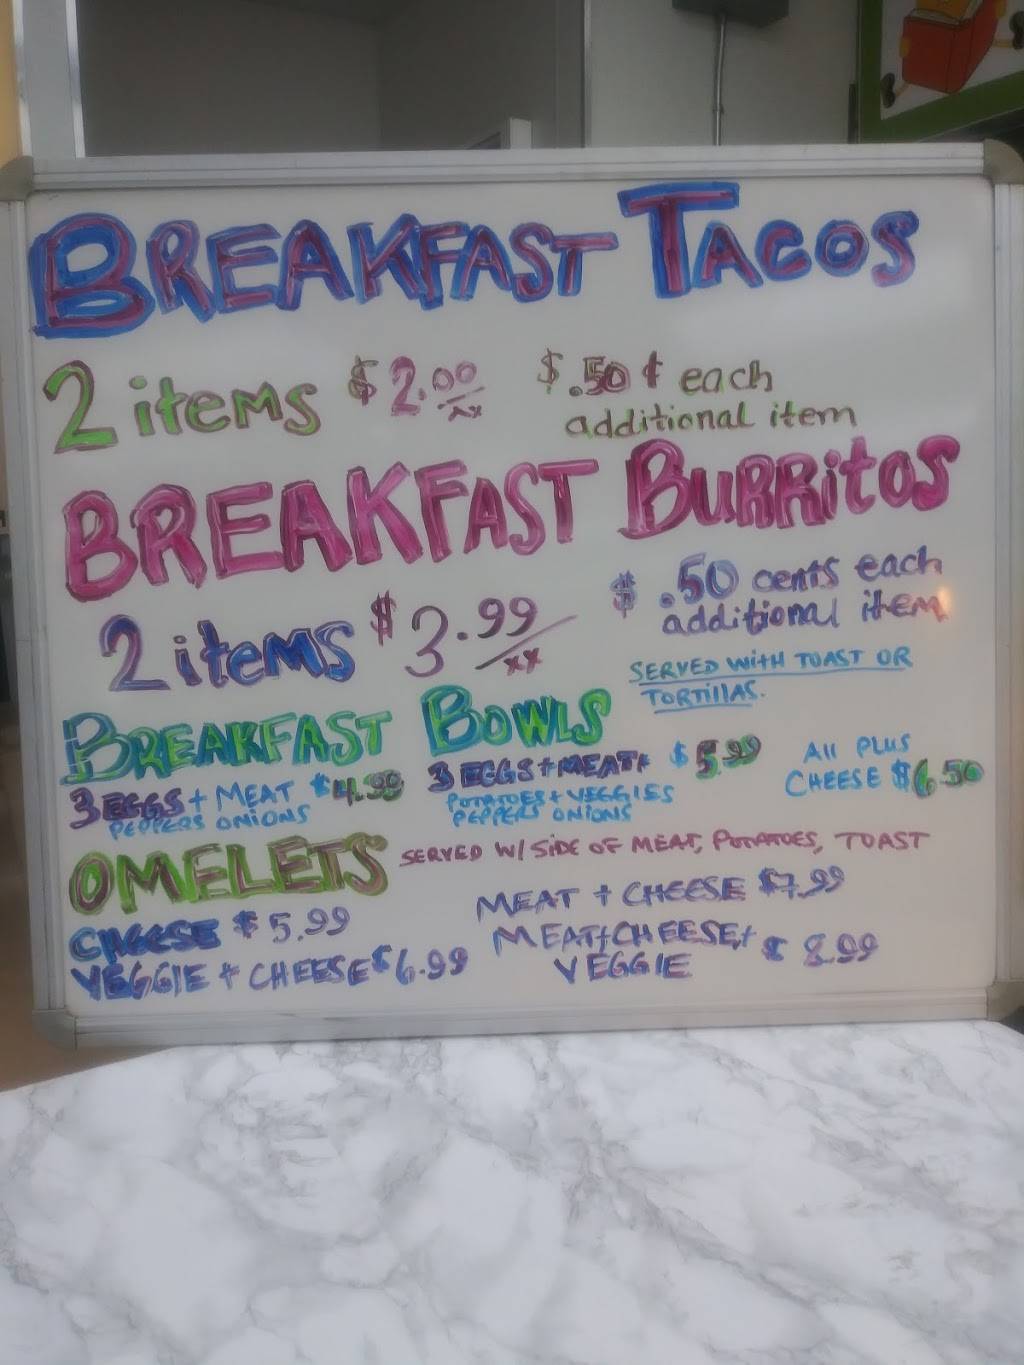 BREAKFAST TACOS
2 items $2.00/xx $.50¢ each
additional item
BREAKFAST BURRitOS
2 items $3.99/xx $.50 cents each
additional item
SERVED WITH TOAST OR
TORTILLAS.
BREAKFAST BOWLS
3 EGGS + MEAT $4.99
PEPPERS ONIONS
3 EGGS + MEAT + $5.99
POTATOES + VEGGIES
PEPPERS ONIONS
All PLUS
CHEESE $6.50
OMELETS SERVED W/ SIDE OF MEAT, POTATOES, TOAST
CHEESE $5.99
VEGGIE + CHEESE $6.99
MEAT + CHEESE $7.99
MEAT+CHEESE,+
VEGGIE $8.99